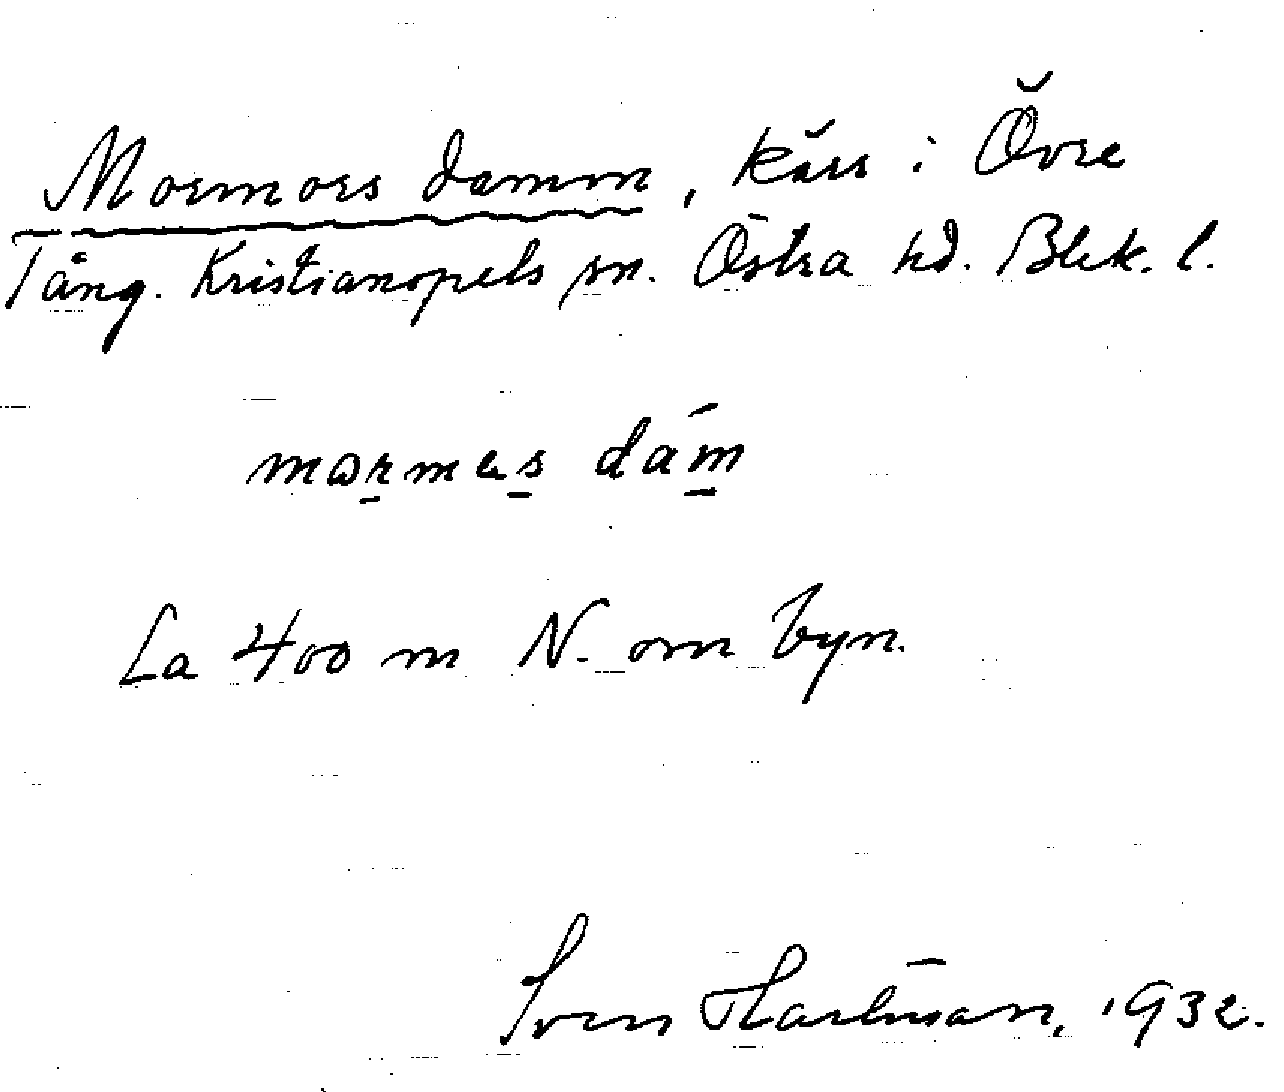 Mormors damm, kärr i Övre
Tång. Kristianopels sn. Östra hd. Blek. l.
mormas dám
Ca 400 m N. om byn.
Sven Hartman, 1932.